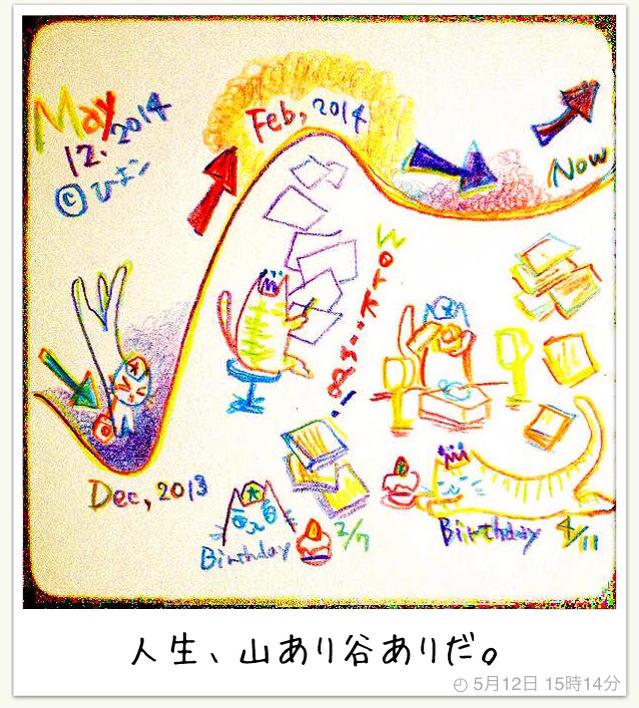 May
12. 2014
©ひよン
Feb, 2014
Now
Work...&...!
Dec, 2013
Birthday
2/7
Birthday 4/11
人生、山あり谷ありだ。
5月12日 15時14分